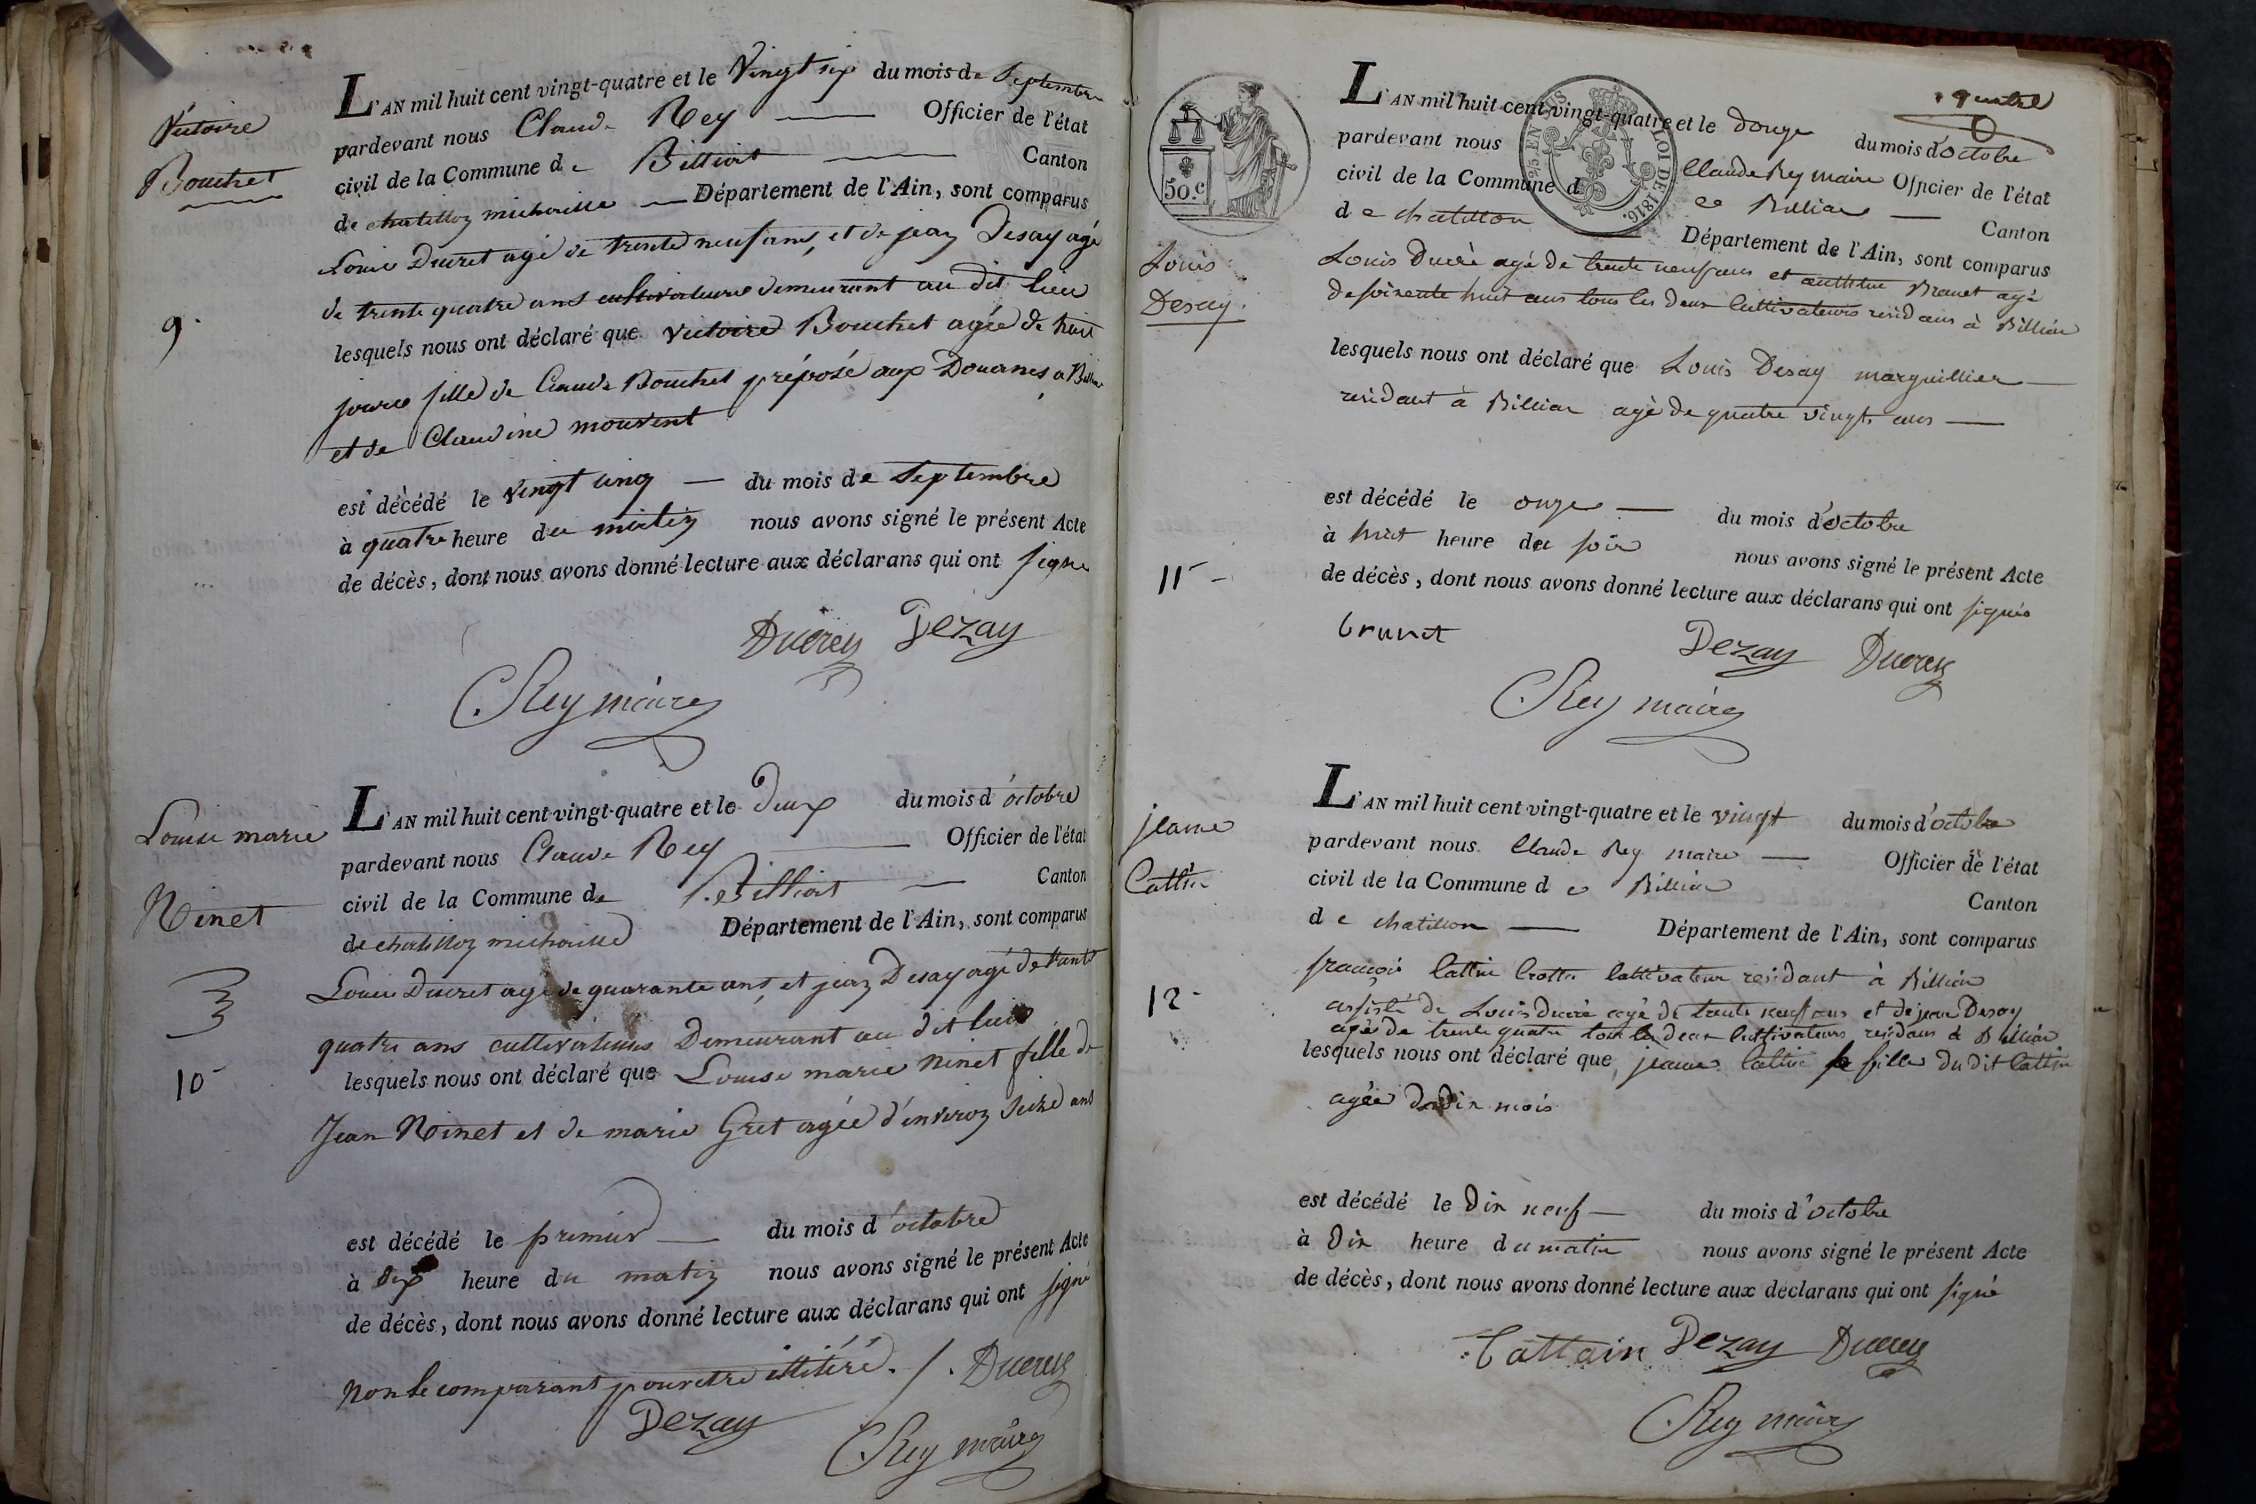 Victoire
Bouchet
9.
L'AN mil huit cent vingt-quatre et le Vingt six du mois de Septembre
pardevant nous Claude Rey Officier de l'état
civil de la Commune de Billiat Canton
de chatillon michaille Département de l'Ain, sont comparus
Louis Ducret agé de trente neuf ans, et de jean Desay agé
de trente quatre ans cultivateurs demeurant au dit lieu
lesquels nous ont déclaré que victoire Bouchet agée de huit
jours fille de Claude Bouchet préposé aux Douanes a
et de Claudine mouvent
est décédé le vingt cinq du mois de Septembre
à quatre heure du matin nous avons signé le présent Acte
de décès, dont nous avons donné lecture aux déclarans qui ont signé
Ducrey Dezay
CRey maire
Louise marie
Ninet
10
L'AN mil huit cent vingt-quatre et le deux du mois d'octobre
pardevant nous Claude Rey Officier de l'état
civil de la Commune de Billiat Canton
de chatillon michaille Département de l'Ain, sont comparus
Louis Ducret agé de quarante ans, et jean Desay agé de trente
quatre ans cultivateurs Demeurant au dit lieu
lesquels nous ont déclaré que Louise marie Ninet fille de
Jean Ninet et de marie Gret agée d'environ seize ans
est décédé le premier du mois d'octobre
à dix heure du matin nous avons signé le présent Acte
de décès, dont nous avons donné lecture aux déclarans qui ont signé
Non le comparant pour etre illitéré. Ducrey
Dezay
CRey maire
quatre
50.c
LOI DE 1816.
Louis
Desay.
11
L'AN mil huit cent vingt-quatre et le douze du mois d'octobre
pardevant nous Claude Rey maire Officier de l'état
civil de la Commune de Billiat Canton
de chatillon Département de l'Ain, sont comparus
Louis Ducré agé de trente neuf ans et Brunet agé
de soixente huit ans tous les deux Cultivateurs residans à Billiat
lesquels nous ont déclaré que Louis Desay marguillier
residant à Billiat agé de quatre vingt ans
est décédé le onze du mois d'octobre
à huit heure du soir nous avons signé le présent Acte
de décès, dont nous avons donné lecture aux déclarans qui ont signés
brunet Dezay Ducrey
CRey maire
jeanne
Cattin
12
L'AN mil huit cent vingt-quatre et le vingt du mois d'octobre
pardevant nous Claude Rey maire Officier de l'état
civil de la Commune de Billiat Canton
de chatillon Département de l'Ain, sont comparus
françois Cattin Cultivateur residant à Billiat
assisté de Louis Ducré agé de trente neuf ans et de jean Desay
agé de trente quatre tous les deux Cultivateurs residans à Billiat
lesquels nous ont déclaré que jeanne Cattin fille du dit Cattin
agée de dix mois
est décédé le Dix neuf du mois d'octobre
à Dix heure du matin nous avons signé le présent Acte
de décès, dont nous avons donné lecture aux déclarans qui ont signé
Cattain Dezay Ducrey
CRey maire